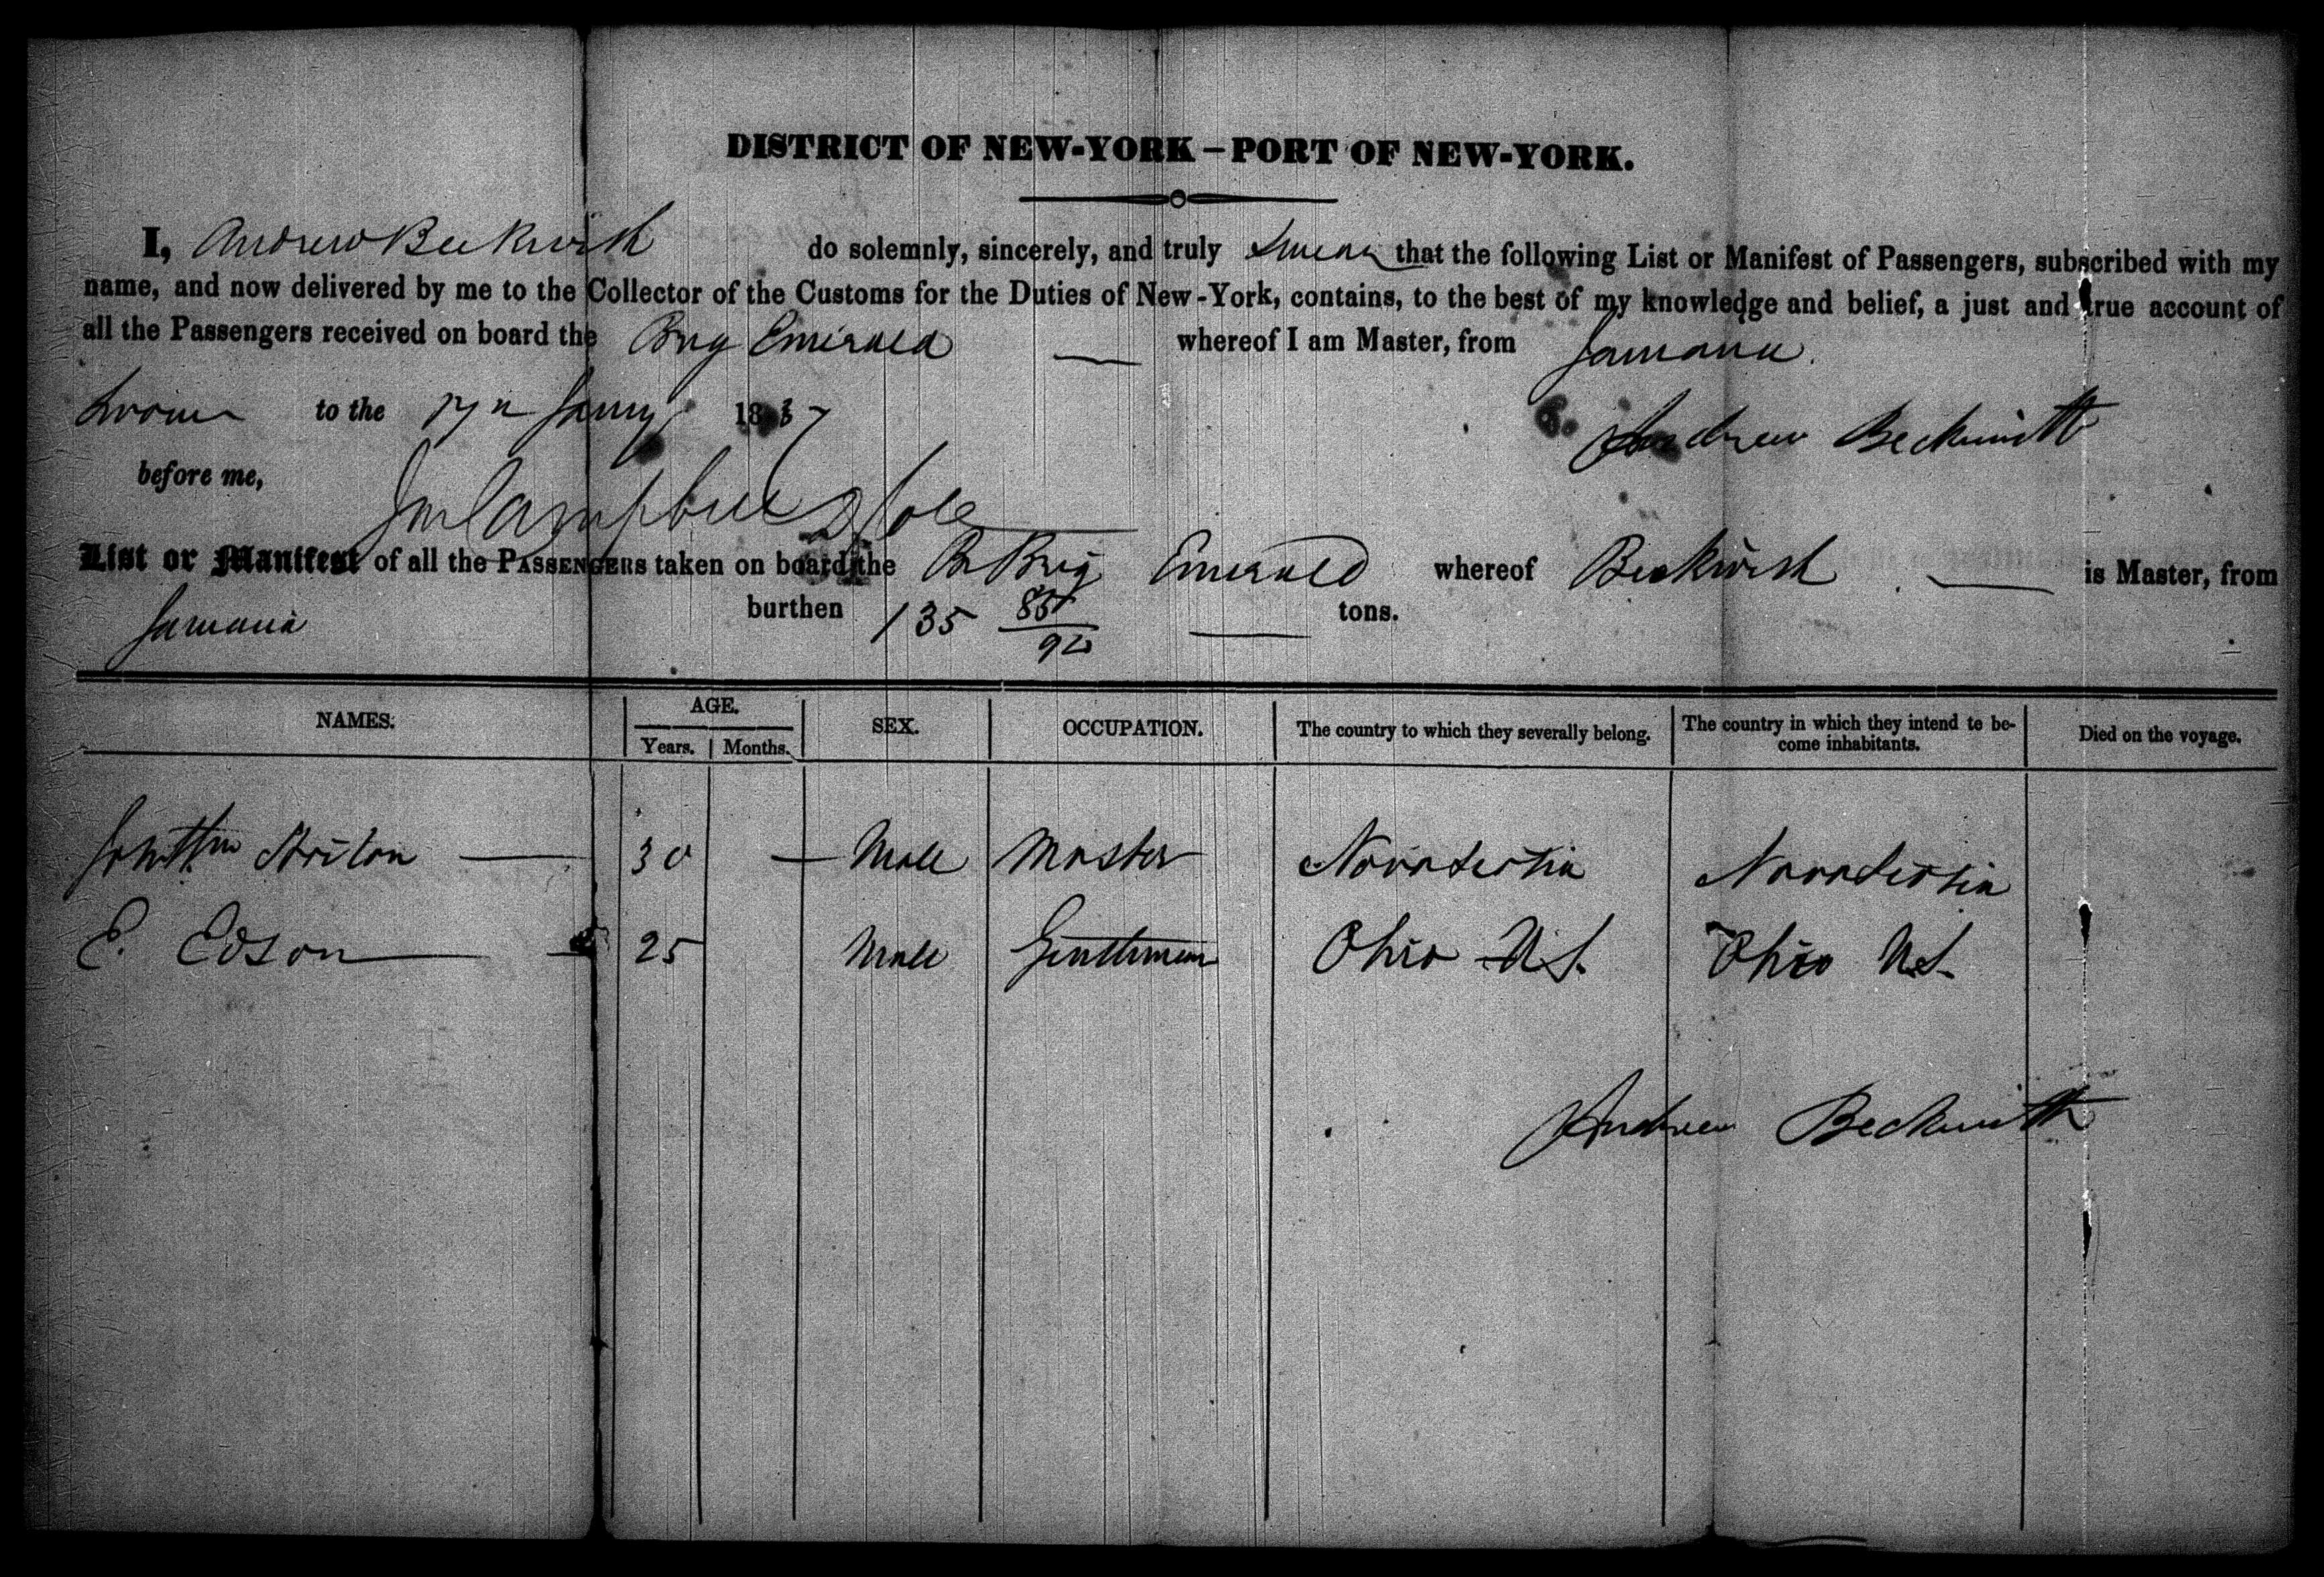 DISTRICT OF NEW-YORK – PORT OF NEW-YORK.
I, Andrew Beckwith do solemnly, sincerely, and truly Swear that the following List or Manifest of Passengers, subscribed with my
name, and now delivered by me to the Collector of the Customs for the Duties of New-York, contains, to the best of my knowledge and belief, a just and true account of
all the Passengers received on board the Brig Emerald whereof I am Master, from Jamaica
Sworn to the 17th Jany 1837
Andrew Beckwith
before me,
Campbell
List or Manifest of all the PASSENGERS taken on board the Br Brig Emerald whereof Beckwith is Master, from
Jamaica burthen 135 85/92 tons.
NAMES. AGE. Years. Months. SEX. OCCUPATION. The country to which they severally belong. The country in which they intend te become inhabitants. Died on the voyage.
30 — Male Master Nova Scotia Nova Scotia
E. Edson 25 Male Gentleman Ohio U.S. Ohio U.S.
Andrew Beckwith